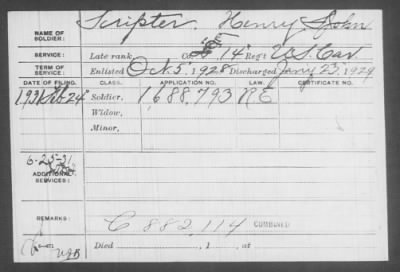 NAME OF SOLDIER: Scripter, Henry John
SERVICE: Late rank Co. 14" Reg't U.S. Cav
TERM OF SERVICE: Enlisted Oct. 5", 1928 Discharged Jany 23", 1929
DATE OF FILING. CLASS. APPLICATION NO. LAW. CERTIFICATE NO.
1931 Feb 24" Soldier, 1688,793 RE
Widow,
Minor,
6-25-31
ADDITIONAL SERVICES:
REMARKS: C 882,114 COMBINED
Died , 1 , at